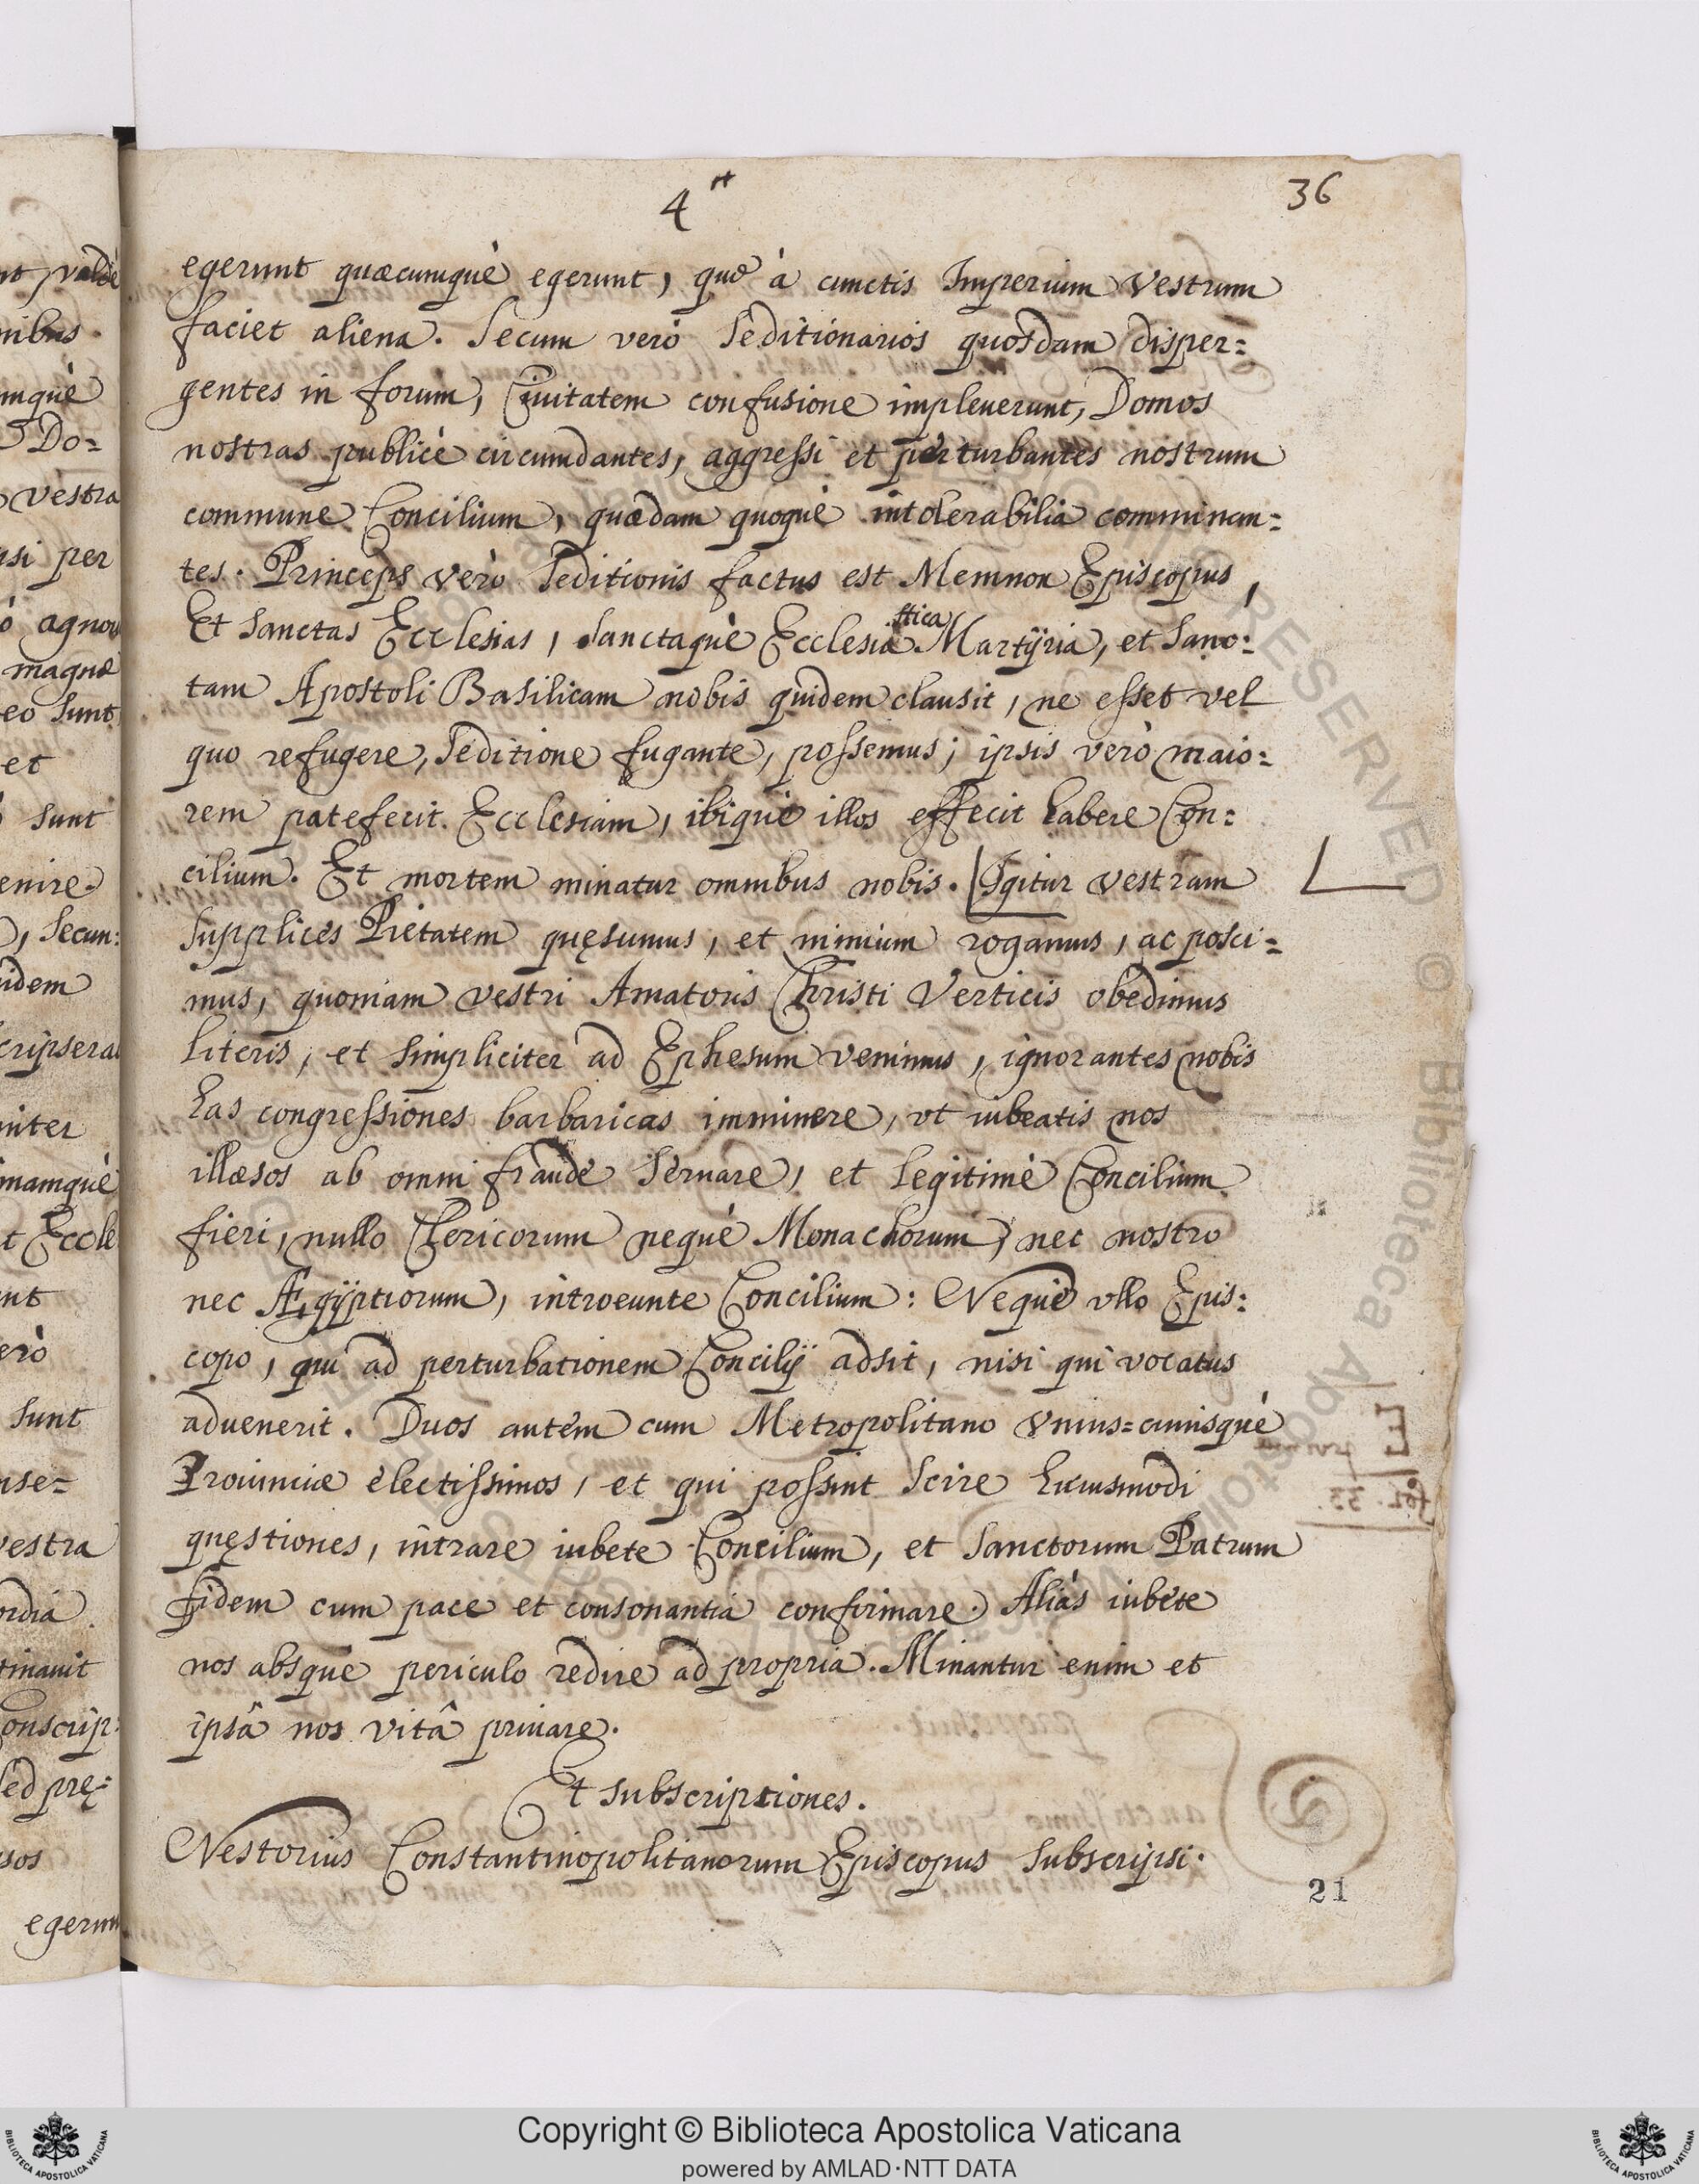 4
36
egerunt quæcumquè egerunt, quę à cunctis Imperium Vestrum
faciet aliena. Secum verò Seditionarios quosdam disper=
gentes in forum, Ciuitatem confusione impleuerunt, Domos
nostras publicè circumdantes, aggressi et perturbantes nostrum
commune Concilium, quædam quoquè intolerabilia comminan=
tes. Princeps verò Seditionis factus est Memnon Episcopus,
Et Sanctas Ecclesias, Sanctaquè Ecclesiastica Martÿria, et Sanc=
tam Apostoli Basilicam nobis quidem clausit, ne esset vel
quo refugere, Seditione fugante, possemus; ipsis verò maio=
rem patefecit Ecclesiam, ibiquè illos effecit habere Con=
cilium. Et mortem minatur omnibus nobis. Igitur vestram
Supplices Pietatem quęsumus, et nimium rogamus, ac posci=
mus, quoniam vestri Amatoris Christi Verticis obedimus
literis, et Simpliciter ad Ephesum venimus, ignorantes nobis
has congressiones barbaricas imminere, vt iubeatis nos
illæsos ab omni fraude Seruare, et legitimè Concilium
fieri, nullo Clericorum nequè Monachorum, nec nostro
nec Ægÿptiorum, introeunte Concilium: Nequè vllo Epis=
copo, qui ad perturbationem Concilÿ adsit, nisi qui vocatus
aduenerit. Duos autem cum Metropolitano Vnius=cuiusquè
Prouinciæ electissimos, et qui possint Scire huiusmodi
quęstiones, intrare iubete Concilium, et Sanctorum Patrum
fidem cum pace et consonantia confirmare. Aliàs iubete
nos absque periculo redire ad propria. Minantur enim et
ipsâ nos vitâ priuare.
Et Subscriptiones.
Nestorius Constantinopolitanorum Episcopus Subscripsi.
21
Copyright © Biblioteca Apostolica Vaticana
powered by AMLAD·NTT DATA